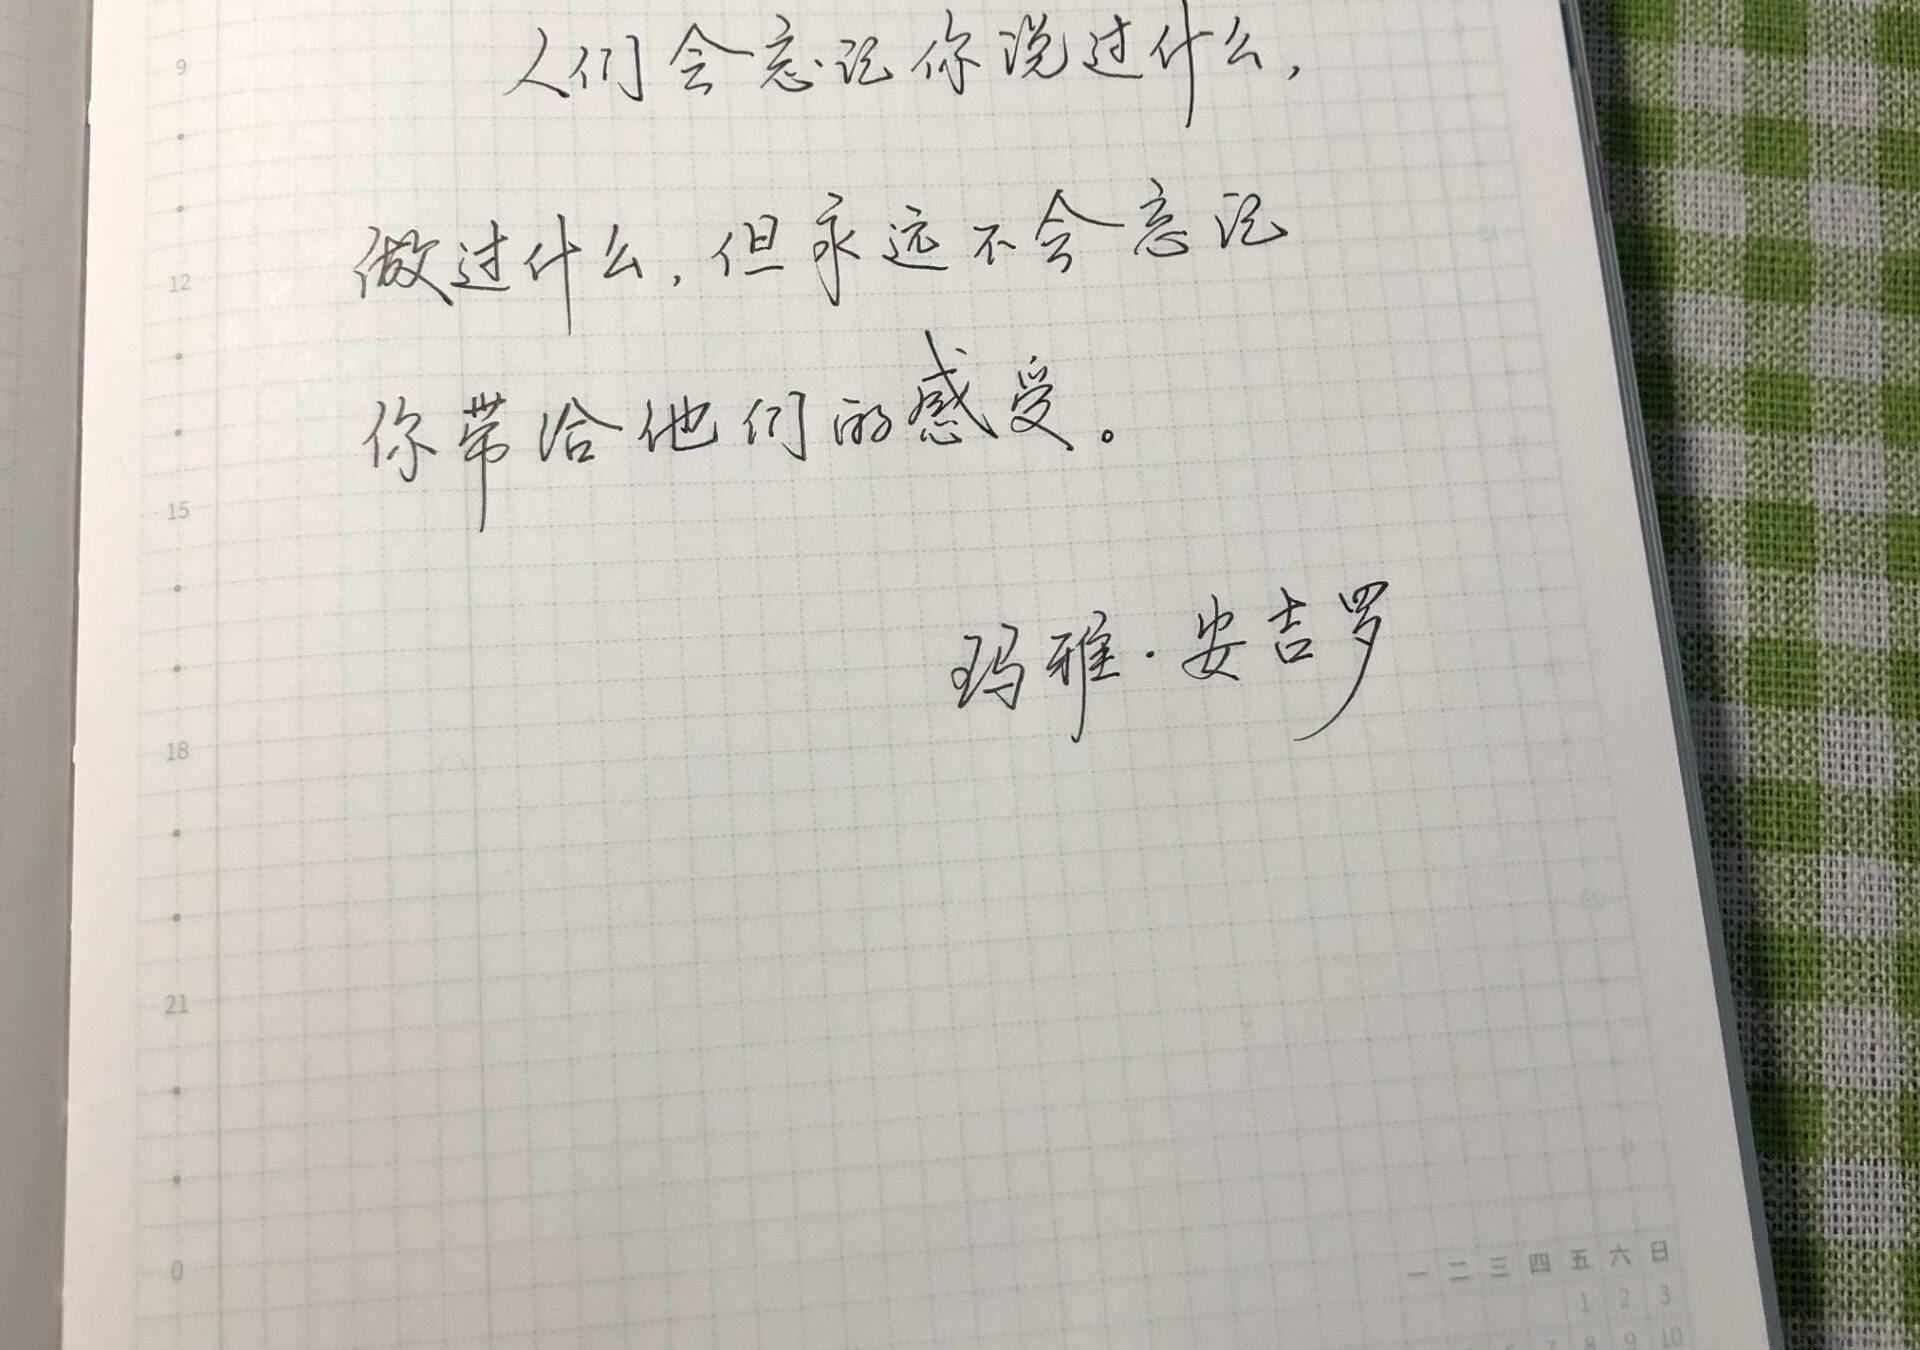 9
人们会忘记你说过什么,
12
做过什么,但永远不会忘记
你带给他们的感受。
15
玛雅·安吉罗
18
21
0
一 二 三 四 五 六 日
1 2 3
8 9 10